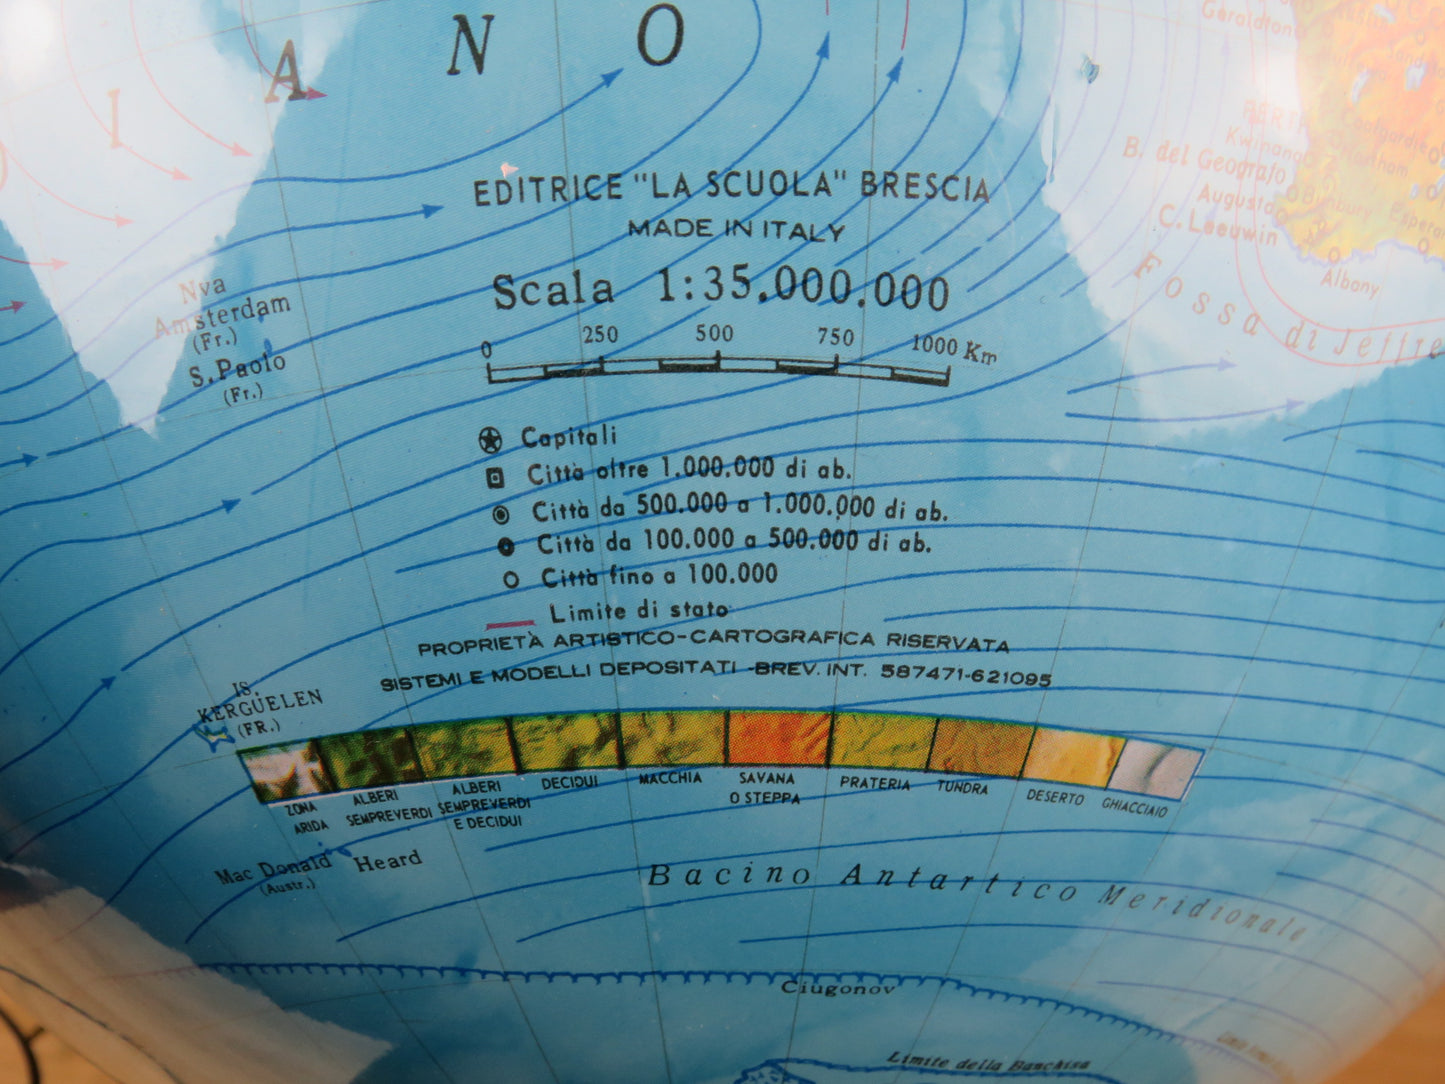 I A N O
Geraldton
PERTH
Kwinana
B. del Geografo
Bunbury
Augusta
C. Leeuwin
Albany
Fossa di Jeffre
EDITRICE "LA SCUOLA" BRESCIA
MADE IN ITALY
Scala 1:35.000.000
0 250 500 750 1000 Km
Nva
Amsterdam
(Fr.)
S. Paolo
(Fr.)
Capitali
Città oltre 1.000.000 di ab.
Città da 500.000 a 1.000.000 di ab.
Città da 100.000 a 500.000 di ab.
Città fino a 100.000
Limite di stato
PROPRIETÀ ARTISTICO-CARTOGRAFICA RISERVATA
SISTEMI E MODELLI DEPOSITATI -BREV. INT. 587471-621095
IS.
KERGUELEN
(FR.)
ZONA
ARIDA
ALBERI
SEMPREVERDI
ALBERI
SEMPREVERDI
E DECIDUI
DECIDUI
MACCHIA
SAVANA
O STEPPA
PRATERIA
TUNDRA
DESERTO
GHIACCIAIO
Mac Donald Heard
(Austr.)
Bacino Antartico Meridionale
Ciugonov
Limite della Banchisa